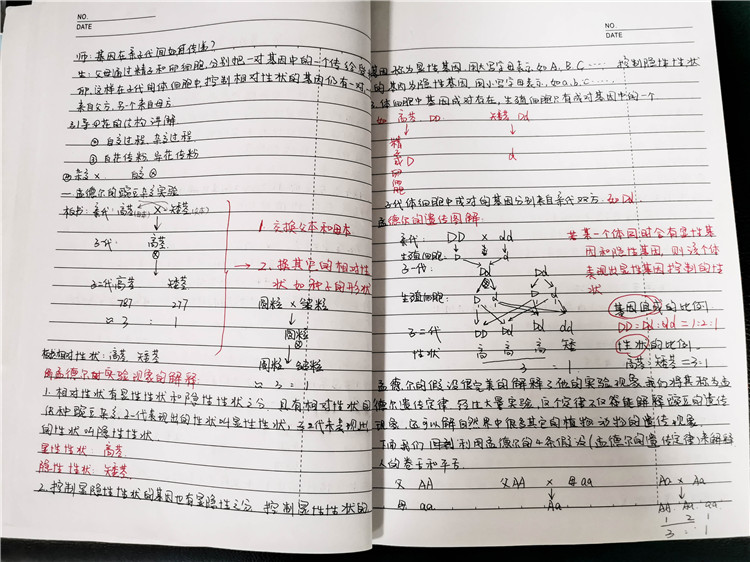 NO.
DATE
师:基因在亲子代间如何传递?
生:父母通过精子和卵细胞,分别把一对基因中的一个传给受精
卵,这样在子代的体细胞中,控制相对性状的基因仍有一对,
来自父方,另一个来自母方
3.1 花的结构 详解
自交过程,杂交过程
自花传粉,异花传粉
杂交 × 自交
一.孟德尔的豌豆杂交实验
板书:亲代:高茎 × 矮茎
子一代: 高茎
子二代 高茎 矮茎
787 277
3 : 1
1. 交换父本和母本
→ 2. 换其它的相对性
状 如种子的形状
圆粒 × 皱粒
圆粒
圆粒 皱粒
3 : 1
相对性状:高茎 矮茎
孟德尔对实验现象的解释:
1. 相对性状有显性性状和隐性性状之分,具有相对性状的
纯种豌豆杂交,子一代表现出的性状叫显性性状,子一代未表现出
的性状叫隐性性状.
显性性状:高茎
隐性性状:矮茎
2. 控制显隐性性状的基因也有显隐性之分,控制显性性状的
NO.
DATE
基因,称为显性基因,用大写字母表示,如A,B,C…… 控制隐性性状
的基因为隐性基因,用小写字母表示,如a,b,c……
3. 体细胞中基因成对存在,生殖细胞只有成对基因中的一个
如 高茎 DD 矮茎 dd
精子或卵细胞
D d
子代体细胞中成对的基因分别来自亲代双方.如Dd
孟德尔的遗传图解:
亲代: DD × dd
生殖细胞: D d
子一代: Dd Dd
生殖细胞: D d D d
子二代 DD Dd Dd dd
性状 高 高 高 矮
3 : 1
若某一个体同时含有显性基
因和隐性基因,则该个体
表现出显性基因控制的性
状
基因组成的比例
DD:Dd:dd=1:2:1
性状的比例
高茎:矮茎=3:1
孟德尔的假设很完美的解释了他的实验现象,我们将其称为孟
德尔遗传定律,经过大量实验,这个定律不仅能够解释豌豆的遗传
现象,还可以解释自然界中很多其它的植物、动物的遗传现象.
下面我们利用孟德尔的4条假设(孟德尔的遗传定律)来解释
人的卷舌和平舌.
父 AA 父 AA × 母 aa Aa × Aa
母 aa Aa AA Aa aa
1 2 1
3 : 1